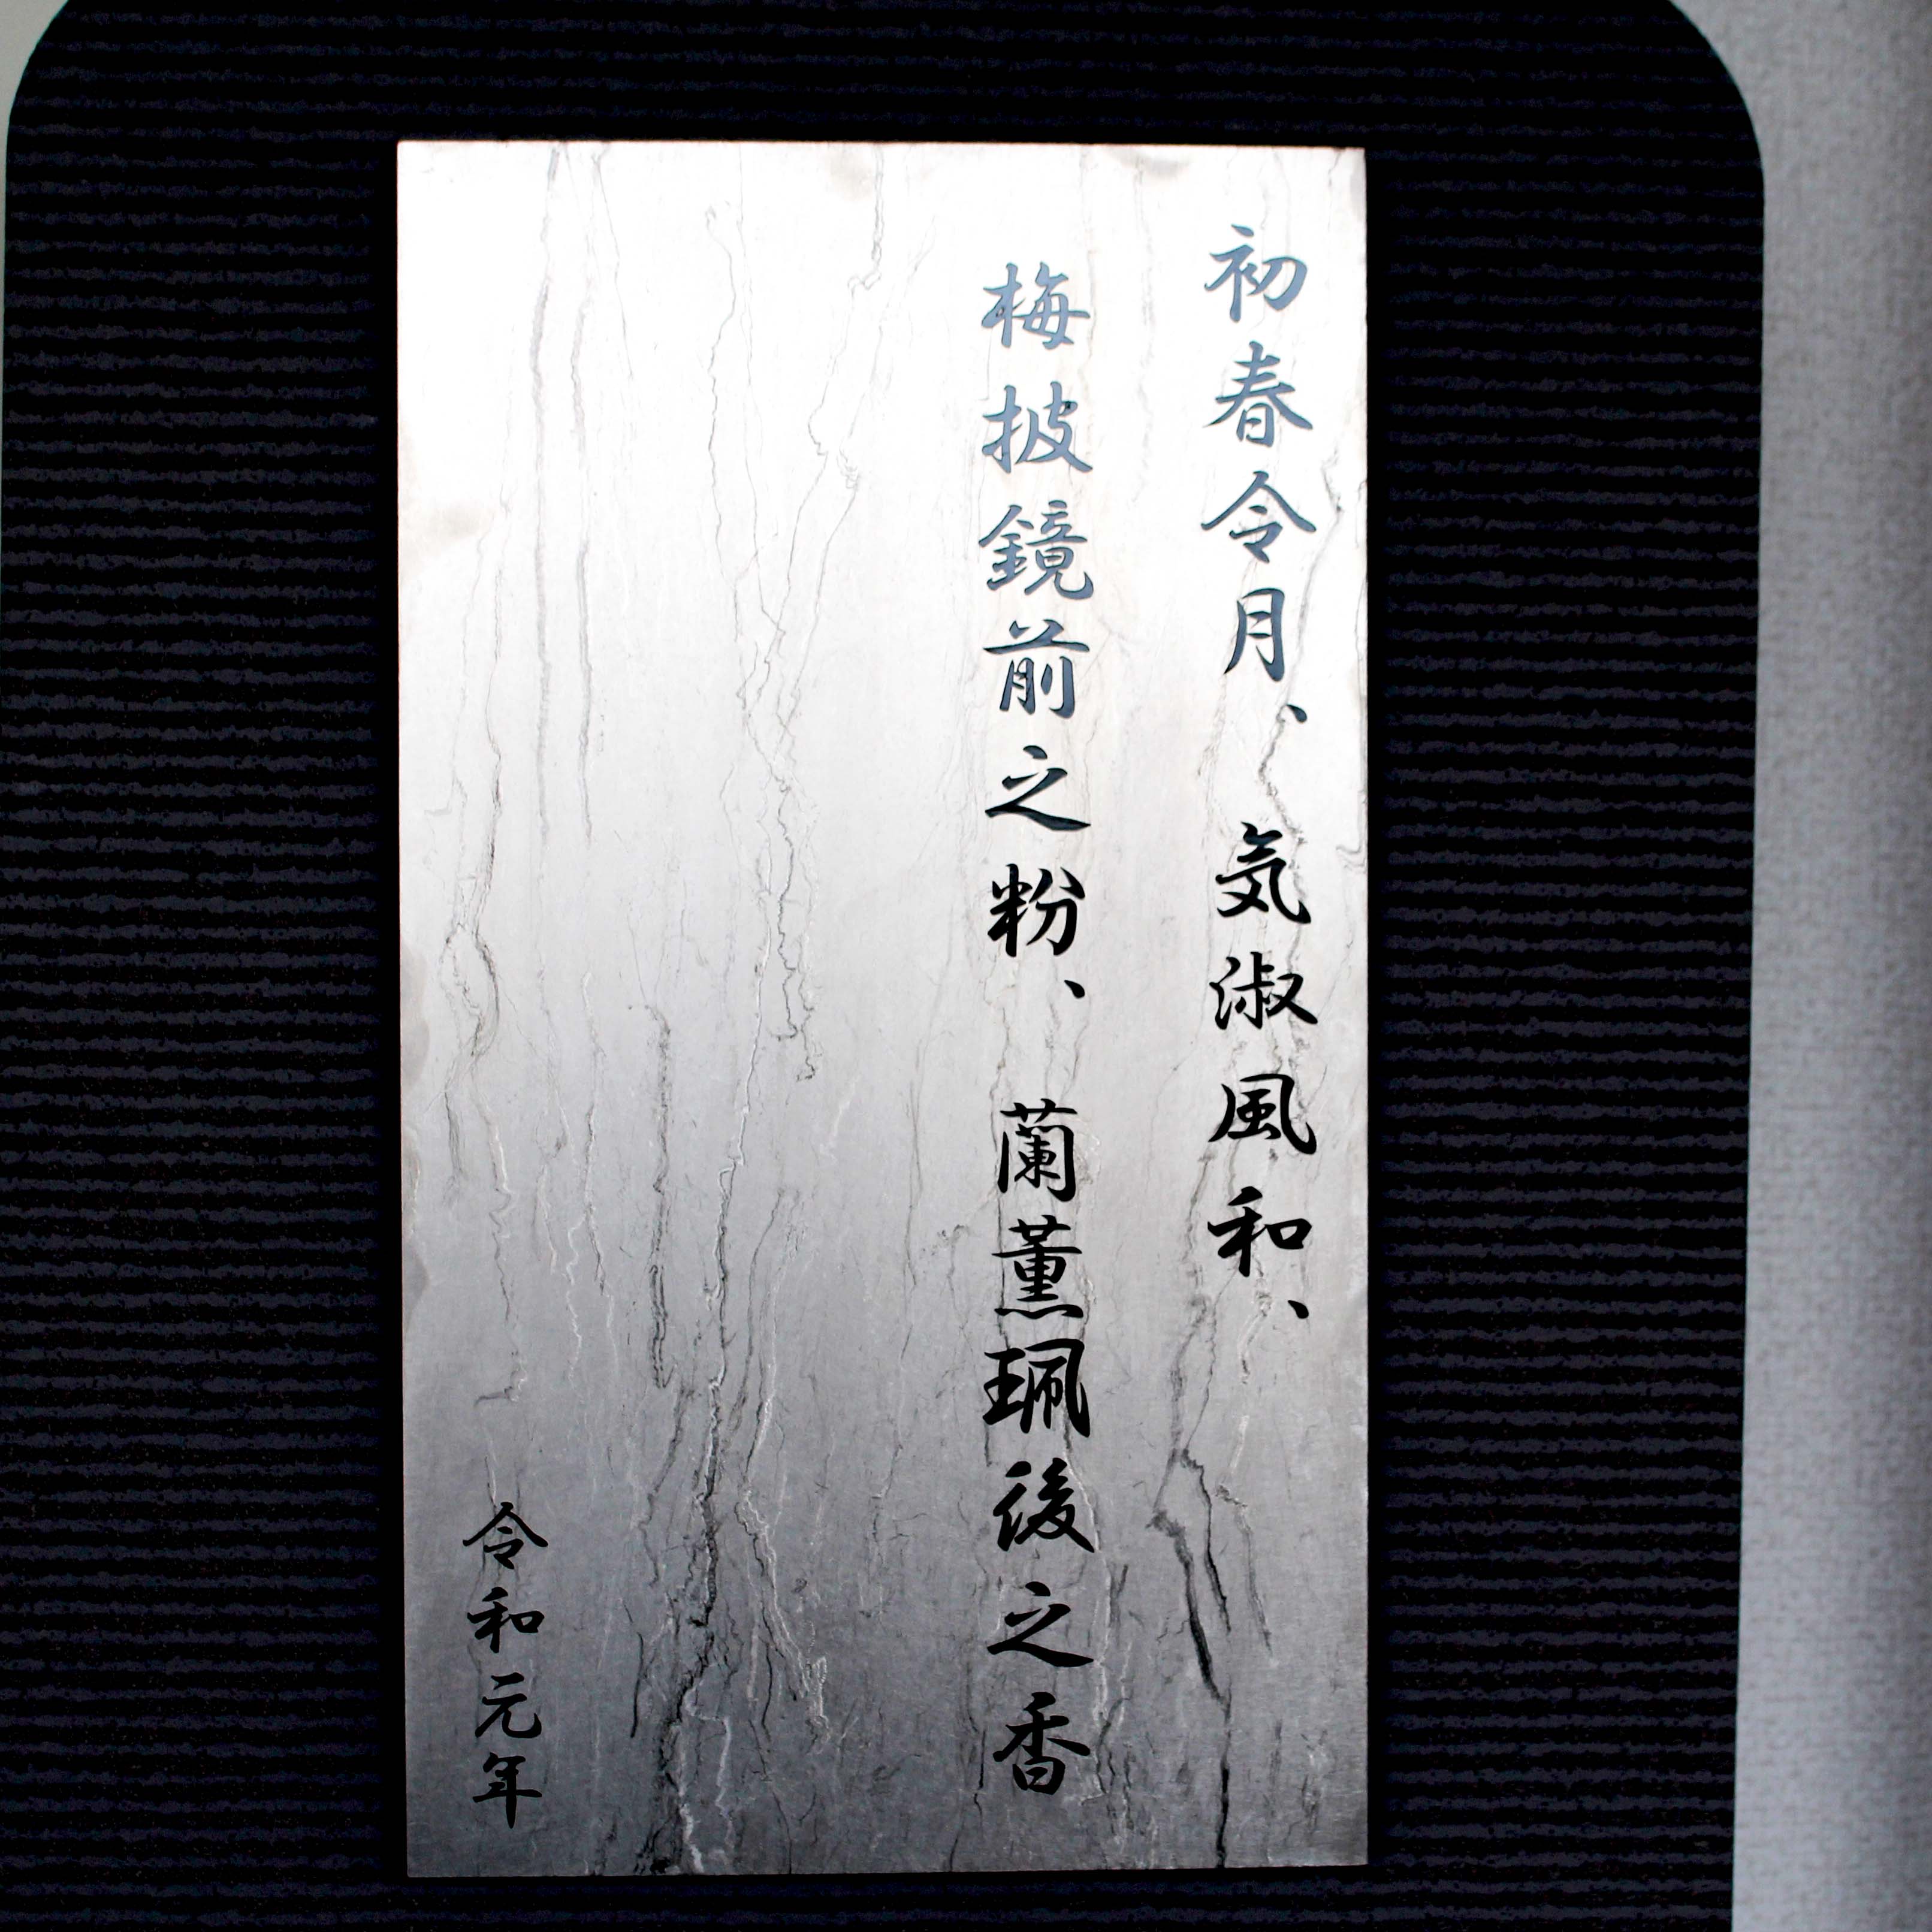 初春令月、気淑風和、
梅披鏡前之粉、蘭薫珮後之香
令和元年